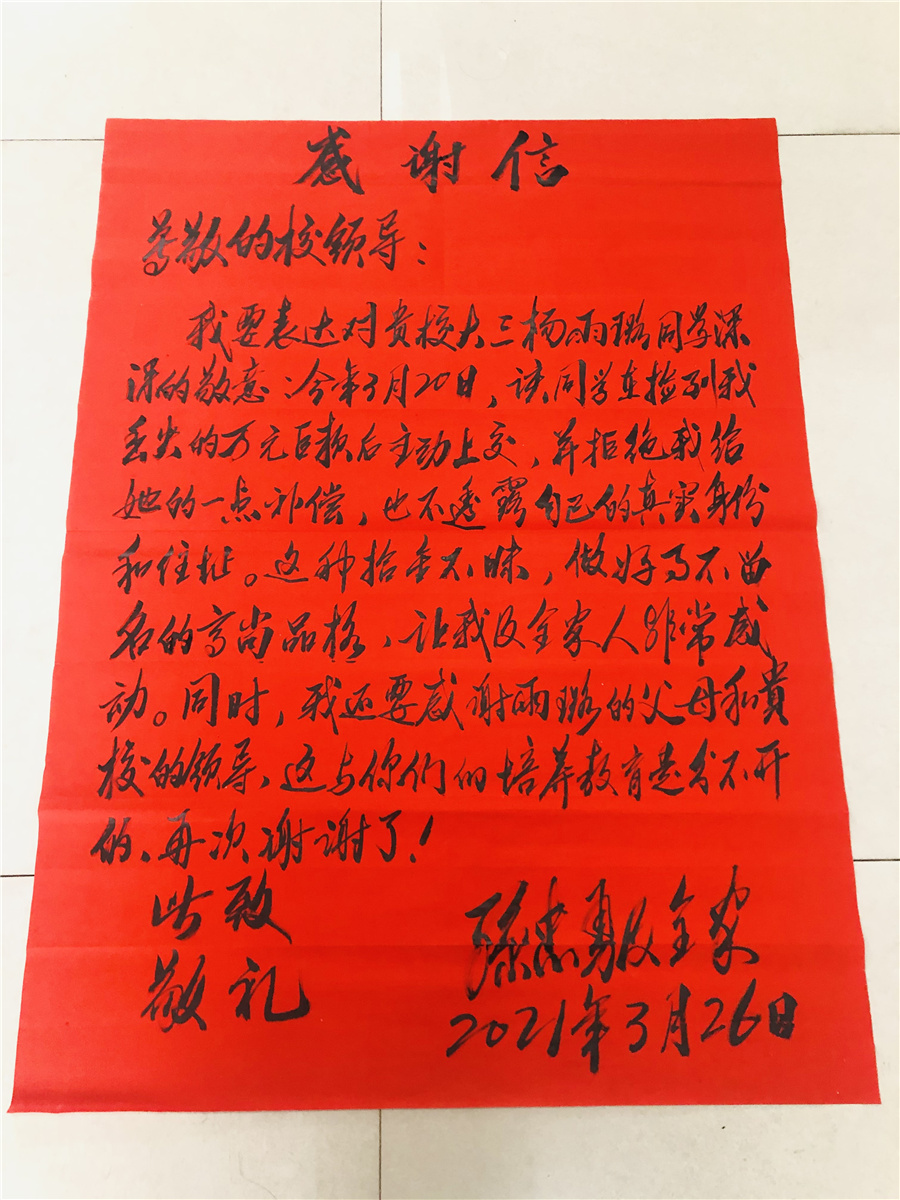 感谢信
尊敬的校领导：
我要表达对贵校大三杨雨璐同学深
深的敬意：今年3月20日，该同学在捡到我
丢失的万元巨款后主动上交，并拒绝我给
她的一点补偿，也不透露自己的真实身份
和住址。这种拾金不昧，做好事不留
名的高尚品格，让我及全家人非常感
动。同时，我还要感谢雨璐的父母和貴
校的领导，这与你们的培养教育是分不开
的，再次谢谢了！
此致
敬礼
孙忠勇及全家
2021年3月26日